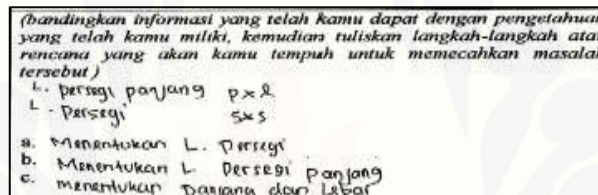 (bandingkan informasi yang telah kamu dapat dengan pengetahuan
yang telah kamu miliki, kemudian tuliskan langkah-langkah atau
rencana yang akan kamu tempuh untuk memecahkan masalah
tersebut)
L. persegi panjang p x l
L. Persegi s x s
a. Menentukan L. Persegi
b. Menentukan L Persegi panjang
c. menentukan panjang dan Lebar